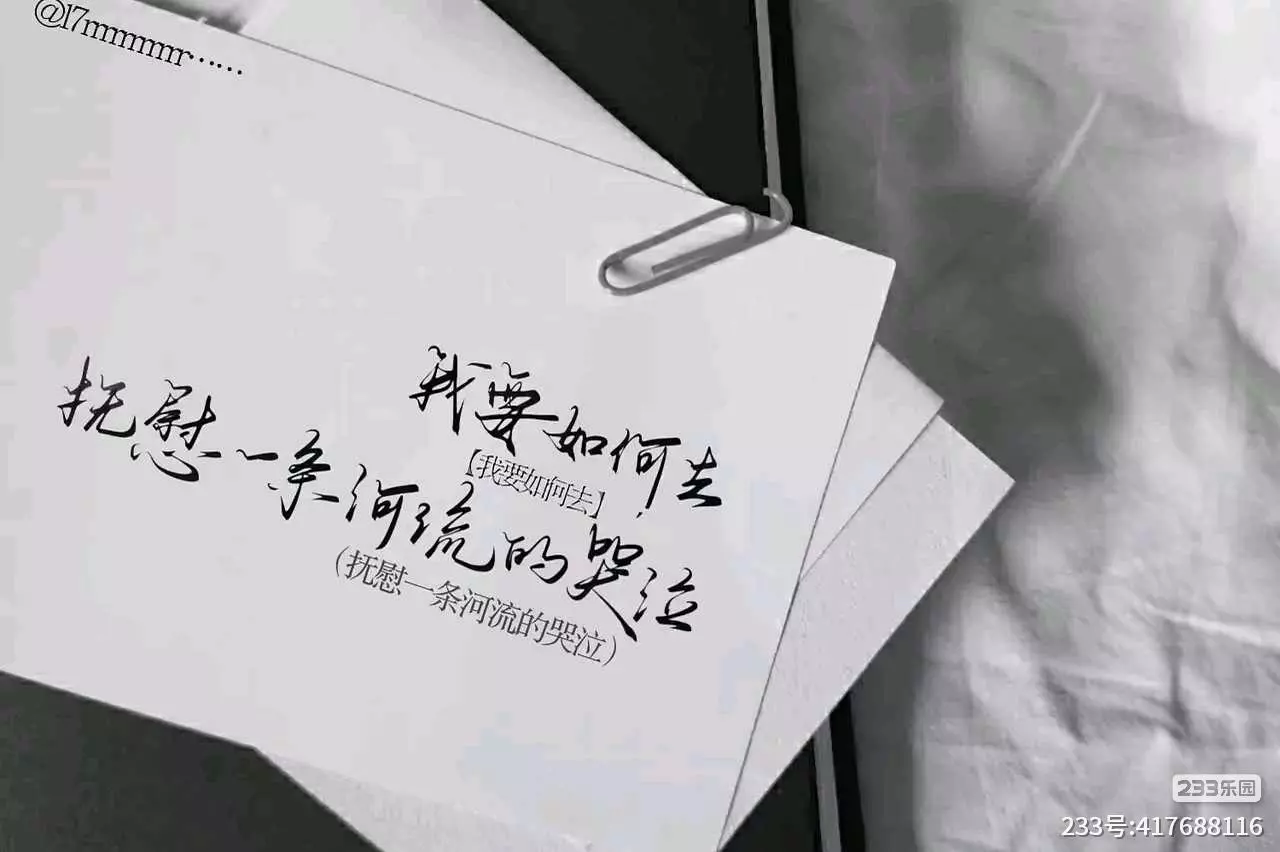 @17mmmmr……
我要如何去
【我要如何去】
抚慰一条河流的哭泣
（抚慰一条河流的哭泣）
233乐园
233号:417688116